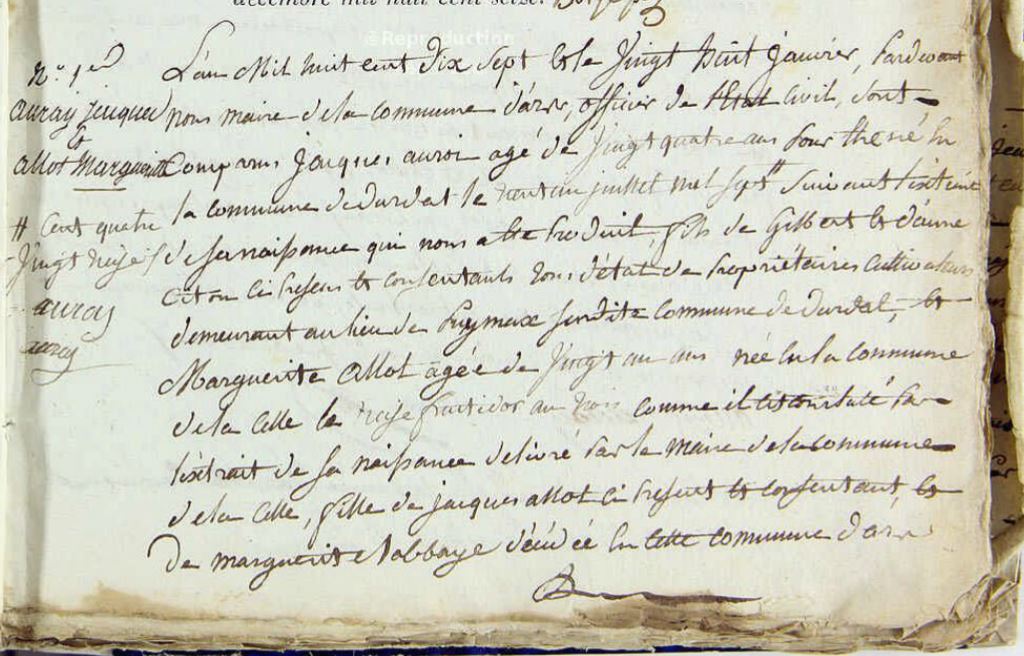 décembre mil huit cent seize.
Reproduction
n.° 1er
auray jacques
&
allot Marguerite
# Cent quatre
Vingt treize /
auray
auray
L'an Mil huit cent dix sept & le Vingt huit janvier, Pardevant
nous maire de la commune d'arse, officier de l'Etat Civil, sont
Comparus Jacques auroi agé de Vingt quatre ans né en
la commune de durdat le trente un juillet mil sept # suivant l'extrait
de sa naissance qui nous a été produit, fils de Gilbert & d'anne
citon ci presens & consentants tous d'état de Propriétaires cultivateurs
demeurant au lieu de Puymax susdite commune de durdat, &
Marguerite Allot agée de Vingt un ans née en la commune
de la celle le treise fructidor an trois comme il est constaté par
l'extrait de sa naissance délivré par le maire de la commune
de la celle, fille de jacques allot ci present & consentant, &
De marguerite labbaye décédée en cette commune